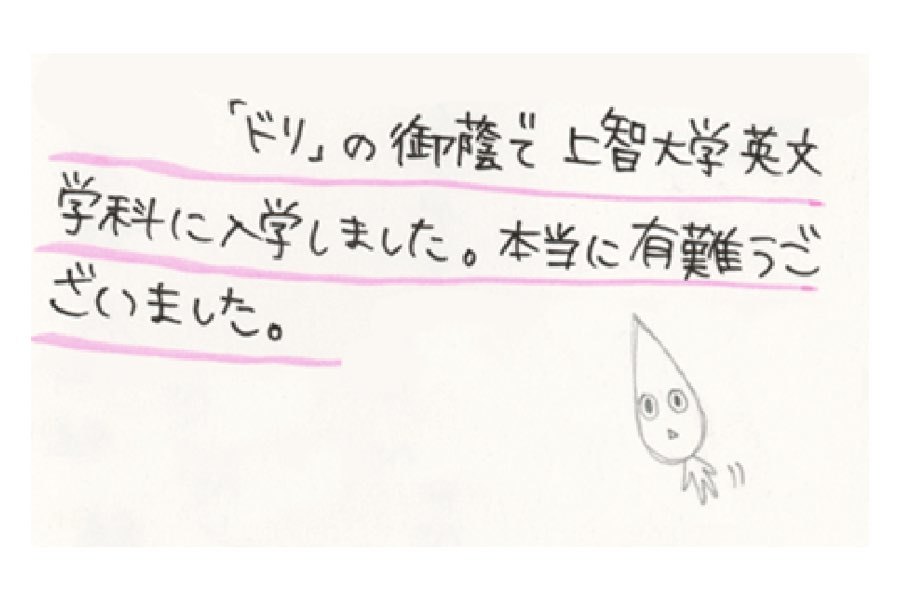 「ドリ」の御蔭で上智大学英文
学科に入学しました。本当に有難うご
ざいました。